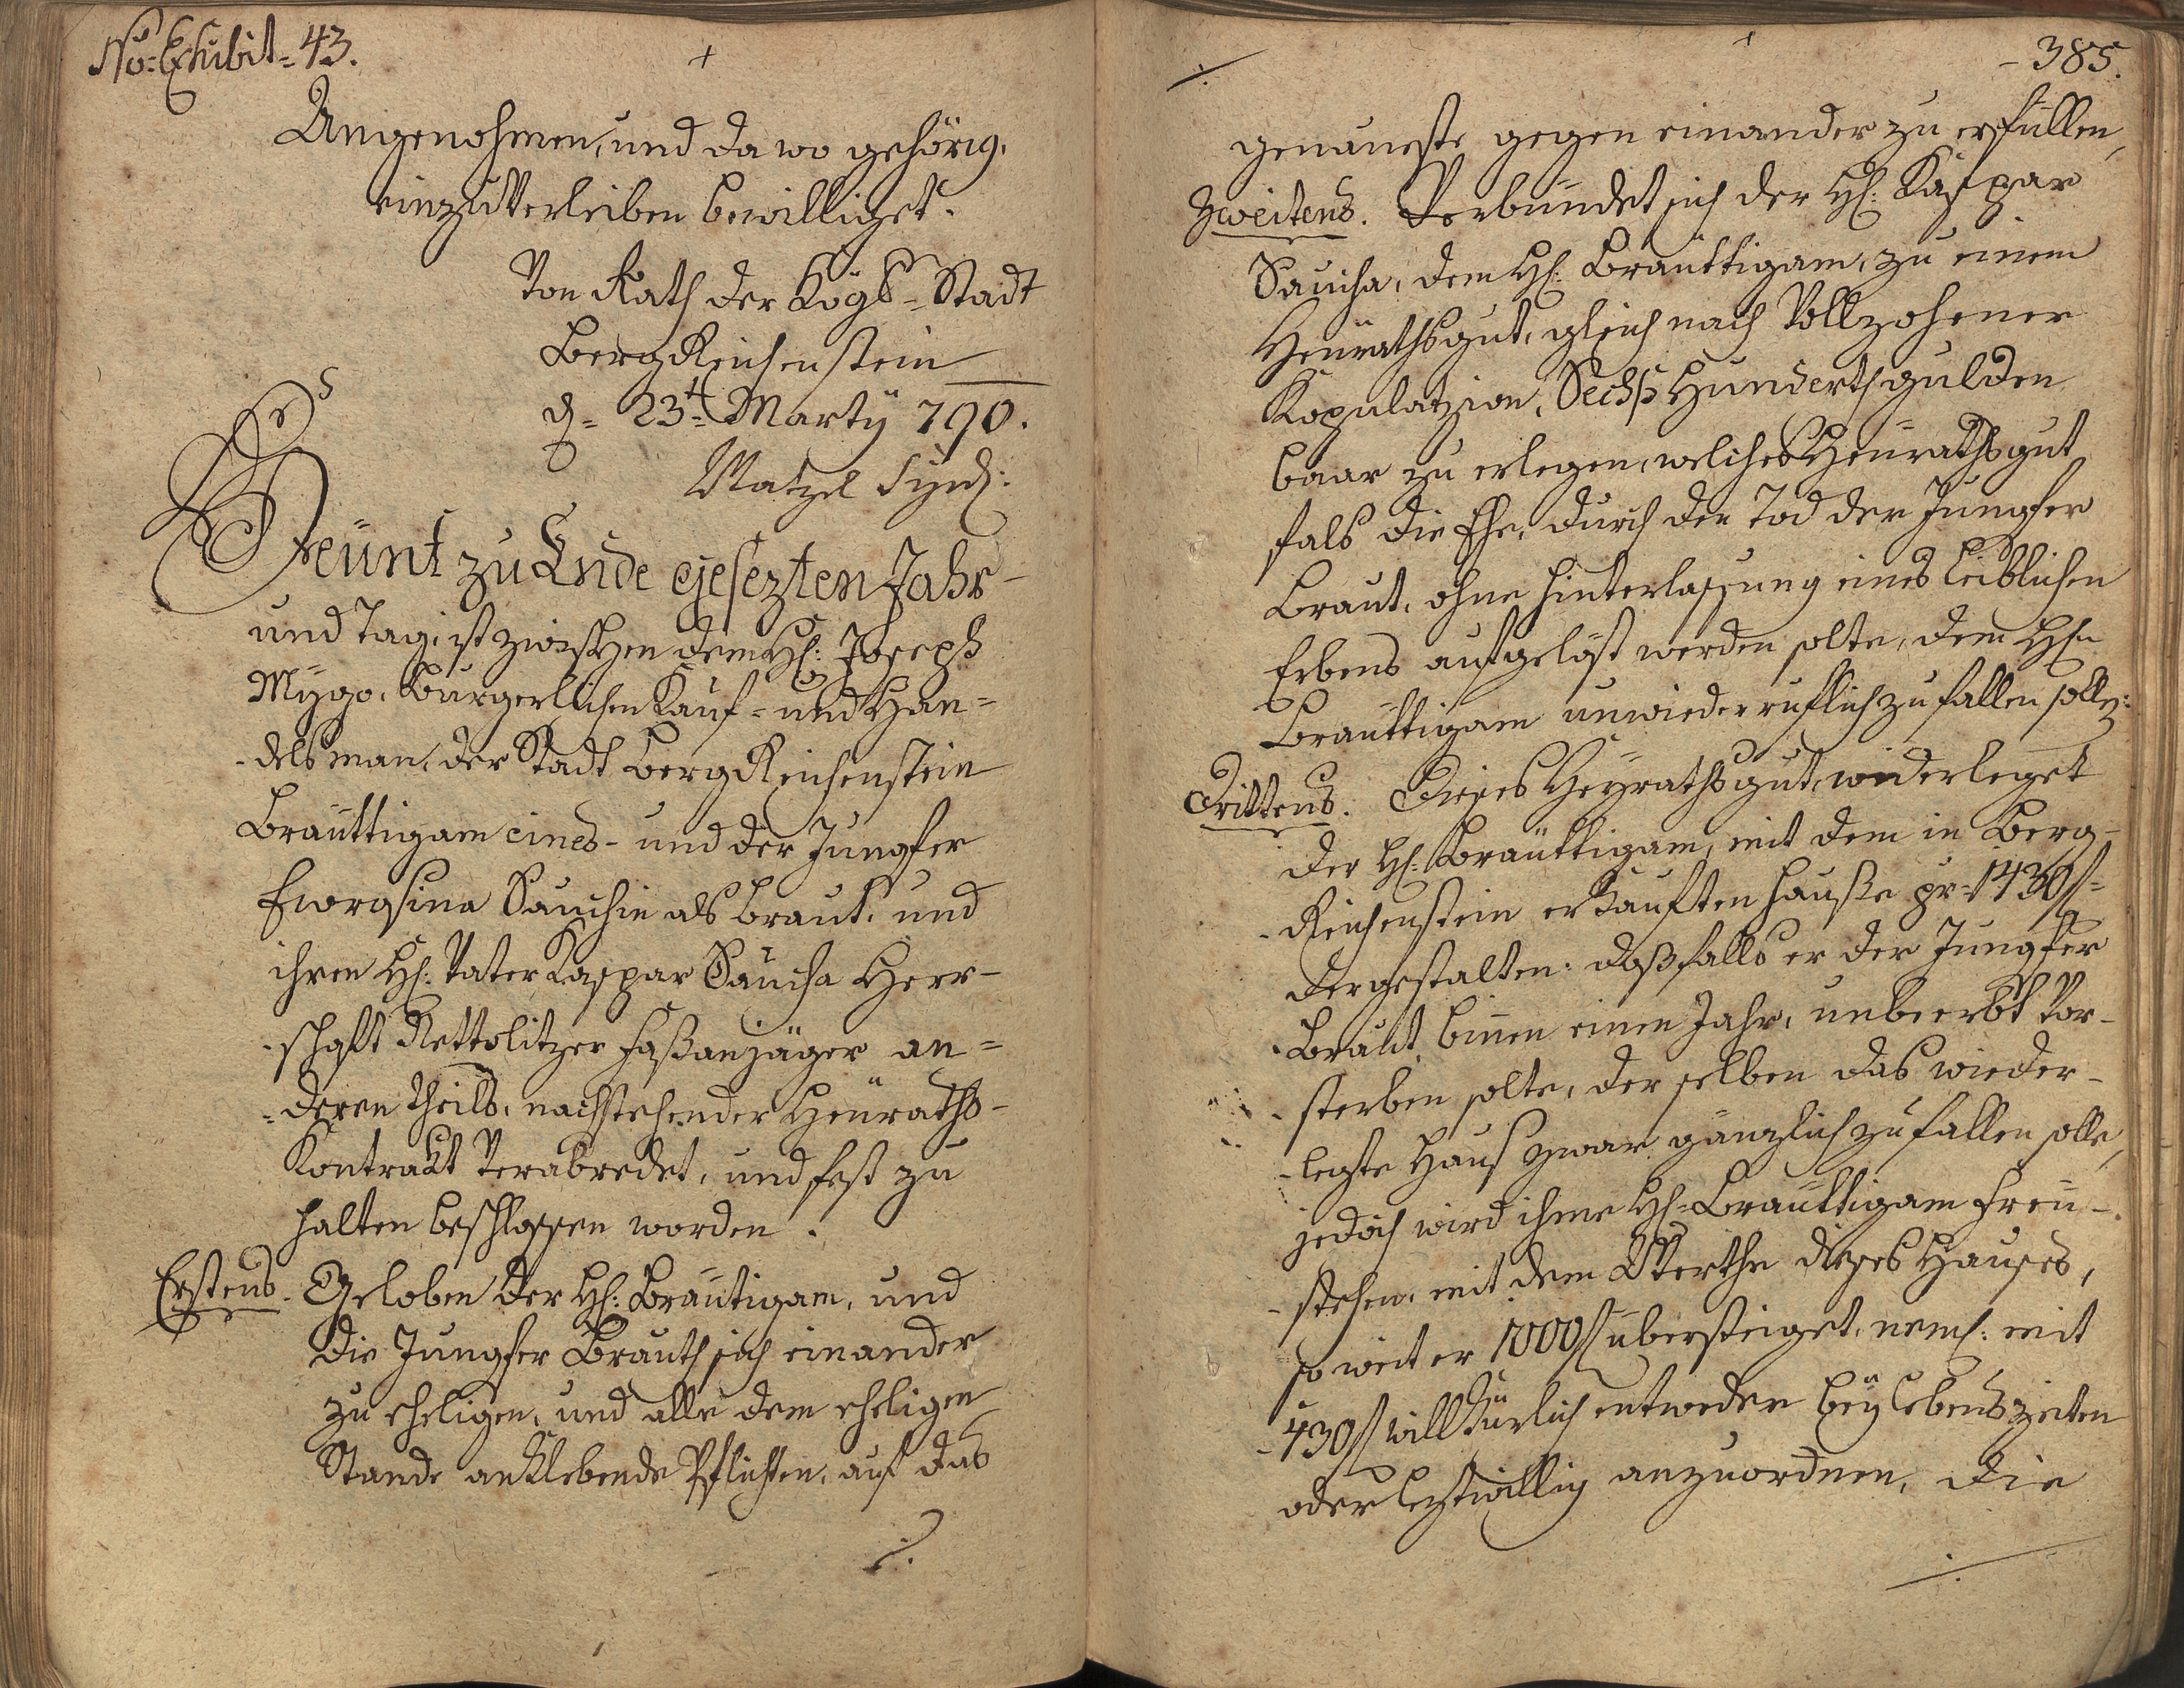 No: Exhibit: 43.
Angenohmen, und da wo gehörig,
einzuverleiben bewilliget.
Von Rath der Kögl: Stadt
BergReichenstein
d: 23t: Marty 790.
Matzel Synd:
Heünt zu Ende gesezten Jahr
und Tag, ist zwischen dem H: Joseph
Mÿgo, Burgerlichen Kauf- und Han-
-delsman, der Stadt BergReichenstein
Bräuttigam eines- und der Jungfer
Eurosina Sauchin als Braut, und
ihren H: Vater Kaspar Saucha Herr-
-schaft Nettolitzer Faßanjäger an-
-deren theils, nachstehender Heüraths-
Kontrakt verabredet, und fest zu
halten beschlossen worden.
Erstens. Geloben der H: Bräutigam, und
die Jungfer Brauth sich einander
zu eheligen, und alle dem eheligen
Stande anklebende Pflichten, auf das
./.
./.
385.
genaueste gegen einander zu erfüllen,
Zweitens. Verbündet sich der H: Kaspar
Saucha, dem H: Bräuttigam, zu einem
Heürathsgut, gleich nach Vollzohener
Kopulatzion, Sechß Hunderth gulden
baar zu erlegen, welches Heürathsgut
fals die Ehe, durch den Tod der Jungfer
Braut, ohne hinterlassung eines Leiblichen
Erbens aufgelöst werden solte, dem Hn
Bräuttigam unwiederruflich zufallen solle:
Drittens. Dieses Heÿrathsgut, widerleget
der H: Bräuttigam, mit dem in Berg-
-Reichenstein erkauften Hauße pr: 1430 f:
dergestalten: daß falls er der Jungfer
Braut binnen einen Jahr, unbeerbt vor-
-sterben solte, derselben das wieder-
-legte Haus zwar gänzlich zufallen solle,
jedoch wird ihme H: Bräuttigam freü-
-stehen, mit dem Werthe dieses Hauses,
so weit er 1000 f übersteiget, neml: mit
430 f willkürlich entweder beÿ lebenszeiten
oder leztwillig anzuordnen, die
./.